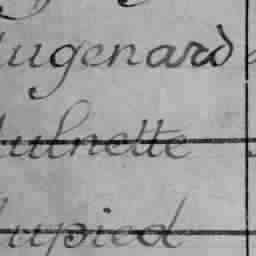 ugenard
ulnette
upied